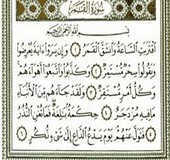 سُورَةُ القَمَرِ
بِسْمِ اللَّهِ الرَّحْمَٰنِ الرَّحِيمِ
اقْتَرَبَتِ السَّاعَةُ وَانْشَقَّ الْقَمَرُ ۝ وَإِنْ يَرَوْا آيَةً يُعْرِضُوا
وَيَقُولُوا سِحْرٌ مُسْتَمِرٌّ ۝ وَكَذَّبُوا وَاتَّبَعُوا أَهْوَاءَهُمْ
وَكُلُّ أَمْرٍ مُسْتَقِرٌّ ۝ وَلَقَدْ جَاءَهُمْ مِنَ الْأَنْبَاءِ
مَا فِيهِ مُزْدَجَرٌ ۝ حِكْمَةٌ بَالِغَةٌ فَمَا تُغْنِ النُّذُرُ
۝ فَتَوَلَّ عَنْهُمْ يَوْمَ يَدْعُ الدَّاعِ إِلَىٰ شَيْءٍ نُكُرٍ ۝